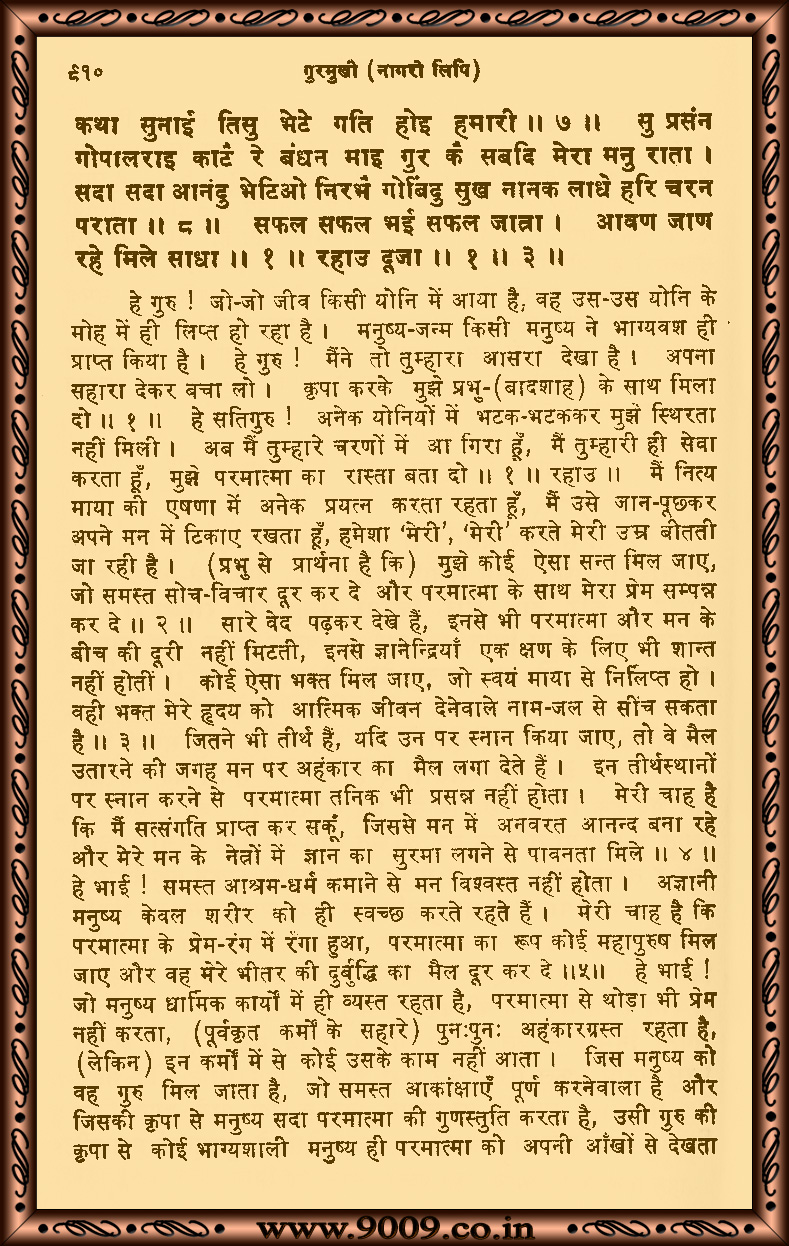 ९१०
गुरमुखी (नागरी लिपि)
कथा सुनाई तिसु भेटे गति होइ हमारी ॥ ७ ॥ सु प्रसंन
गोपालराइ काटै रे बंधन माइ गुर कै सबदि मेरा मनु राता ।
सदा सदा आनंदु भेटिओ निरभै गोबिंदु सुख नानक लाधे हरि चरन
पराता ॥ ८ ॥ सफल सफल भई सफल जात्रा । आवण जाण
रहे मिले साधा ॥ १ ॥ रहाउ दूजा ॥ १ ॥ ३ ॥
हे गुरु ! जो-जो जीव किसी योनि में आया है, वह उस-उस योनि के
मोह में ही लिप्त हो रहा है । मनुष्य-जन्म किसी मनुष्य ने भाग्यवश ही
प्राप्त किया है । हे गुरु ! मैंने तो तुम्हारा आसरा देखा है । अपना
सहारा देकर बचा लो । कृपा करके मुझे प्रभु-(बादशाह) के साथ मिला
दो ॥ १ ॥ हे सतिगुरु ! अनेक योनियों में भटक-भटककर मुझे स्थिरता
नहीं मिली । अब मैं तुम्हारे चरणों में आ गिरा हूँ, मैं तुम्हारी ही सेवा
करता हूँ, मुझे परमात्मा का रास्ता बता दो ॥ १ ॥ रहाउ ॥ मैं नित्य
माया की एषणा में अनेक प्रयत्न करता रहता हूँ, मैं उसे जान-पूछकर
अपने मन में टिकाए रखता हूँ, हमेशा ‘मेरी’, ‘मेरी’ करते मेरी उम्र बीतती
जा रही है । (प्रभु से प्रार्थना है कि) मुझे कोई ऐसा सन्त मिल जाए,
जो समस्त सोच-विचार दूर कर दे और परमात्मा के साथ मेरा प्रेम सम्पन्न
कर दे ॥ २ ॥ सारे वेद पढ़कर देखे हैं, इनसे भी परमात्मा और मन के
बीच की दूरी नहीं मिटती, इनसे ज्ञानेन्द्रियाँ एक क्षण के लिए भी शान्त
नहीं होतीं । कोई ऐसा भक्त मिल जाए, जो स्वयं माया से निर्लिप्त हो ।
वही भक्त मेरे हृदय को आत्मिक जीवन देनेवाले नाम-जल से सींच सकता
है ॥ ३ ॥ जितने भी तीर्थ हैं, यदि उन पर स्नान किया जाए, तो वे मैल
उतारने की जगह मन पर अहंकार का मैल लगा देते हैं । इन तीर्थस्थानों
पर स्नान करने से परमात्मा तनिक भी प्रसन्न नहीं होता । मेरी चाह है
कि मैं सत्संगति प्राप्त कर सकूँ, जिससे मन में अनवरत आनन्द बना रहे
और मेरे मन के नेत्रों में ज्ञान का सुरमा लगने से पावनता मिले ॥ ४ ॥
हे भाई ! समस्त आश्रम-धर्म कमाने से मन विश्वस्त नहीं होता । अज्ञानी
मनुष्य केवल शरीर को ही स्वच्छ करते रहते हैं । मेरी चाह है कि
परमात्मा के प्रेम-रंग में रँगा हुआ, परमात्मा का रूप कोई महापुरुष मिल
जाए और वह मेरे भीतर की दुर्बुद्धि का मैल दूर कर दे ॥५॥ हे भाई !
जो मनुष्य धार्मिक कार्यों में ही व्यस्त रहता है, परमात्मा से थोड़ा भी प्रेम
नहीं करता, (पूर्वकृत कर्मों के सहारे) पुनःपुनः अहंकारग्रस्त रहता है,
(लेकिन) इन कर्मों में से कोई उसके काम नहीं आता । जिस मनुष्य को
वह गुरु मिल जाता है, जो समस्त आकांक्षाएँ पूर्ण करनेवाला है और
जिसकी कृपा से मनुष्य सदा परमात्मा की गुणस्तुति करता है, उसी गुरु की
कृपा से कोई भाग्यशाली मनुष्य ही परमात्मा को अपनी आँखों से देखता
www.9009.co.in